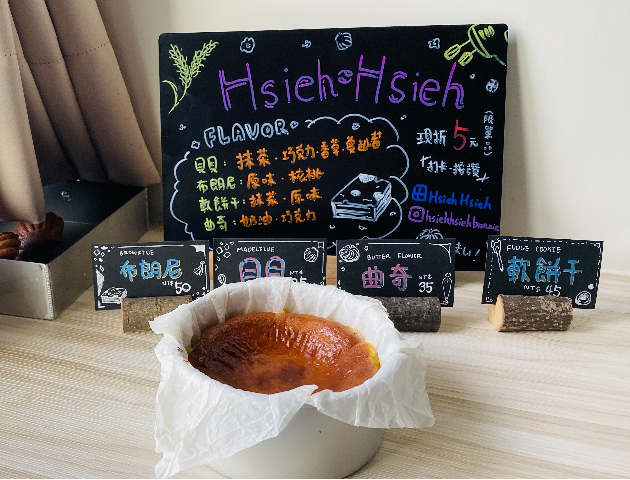 Hsieh Hsieh
FLAVOR
貝貝：抹茶．巧克力．香草．蔓越莓
布朗尼：原味．核桃
軟餅干：抹茶．原味
曲奇：奶油．巧克力
現折 5元
(限單一)
打卡．按讚
Hsieh Hsieh
@hsiehhsiehbrownie
BROWNIE
布朗尼
NT$ 50
MADELEINE
貝貝
NT$ 35
BUTTER FLOWER
曲奇
NT$ 35
FUDGE COOKIE
軟餅干
NT$ 45